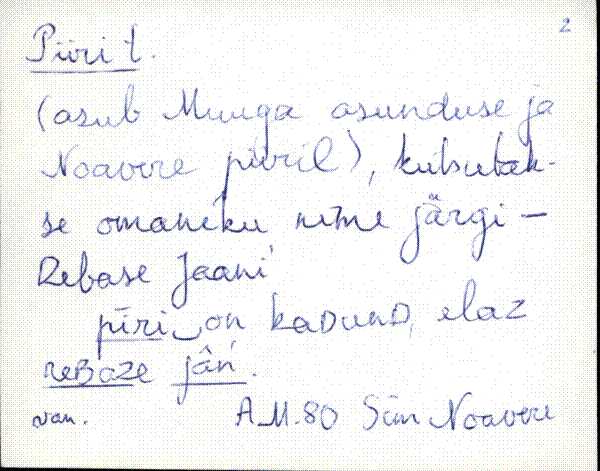 2
Piiri t.
(asub Muuga asunduse ja
Noavere piiril), kutsutak-
se omaniku nime järgi –
Rebase Jaani
pīri‿on kaDunD, elaz
reBaze jân'.
van. A.M.80 Siin Noavere